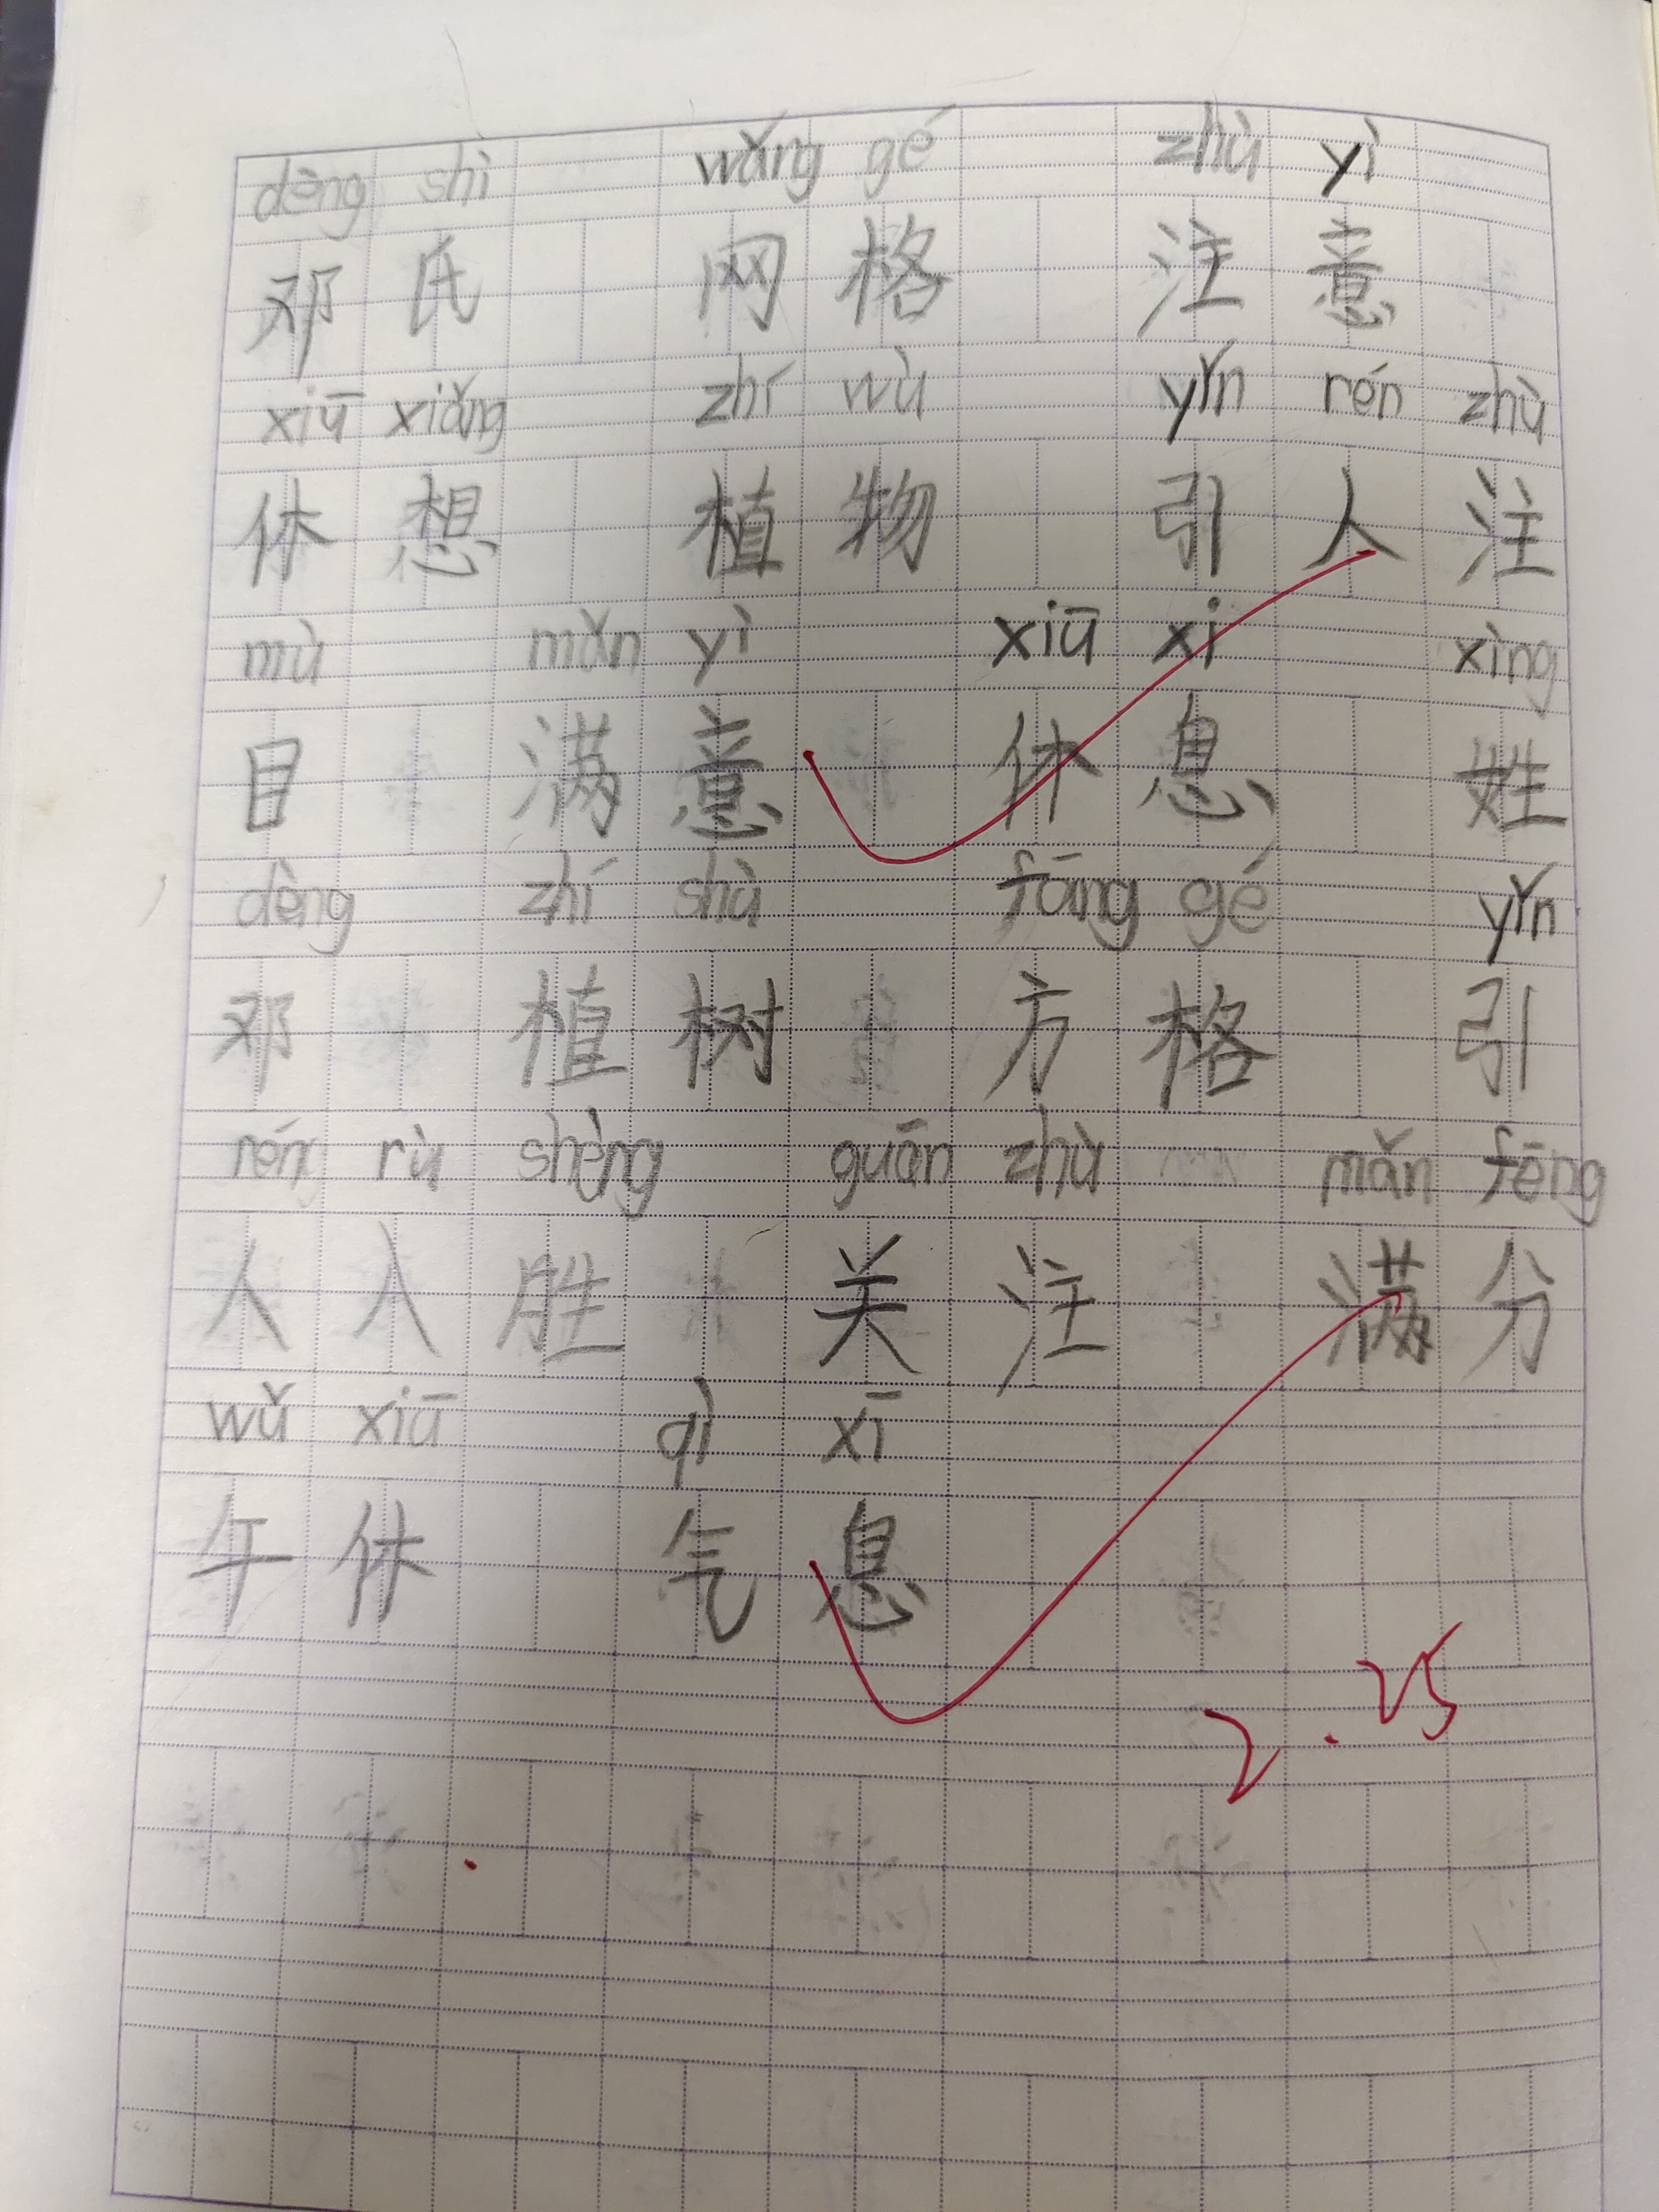 dèng shì wǎng gé zhù yì
邓氏 网格 注意
xiū xiǎng zhí wù yǐn rén zhù
休想 植物 引人注
mù mǎn yì xiū xi xìng
目 满意 休息 姓
dèng zhí shù fāng gé yǐn
邓 植树 方格 引
rén rù shèng guān zhù mǎn fēng
人入胜 关注 满分
wǔ xiū qì xī
午休 气息
2.25